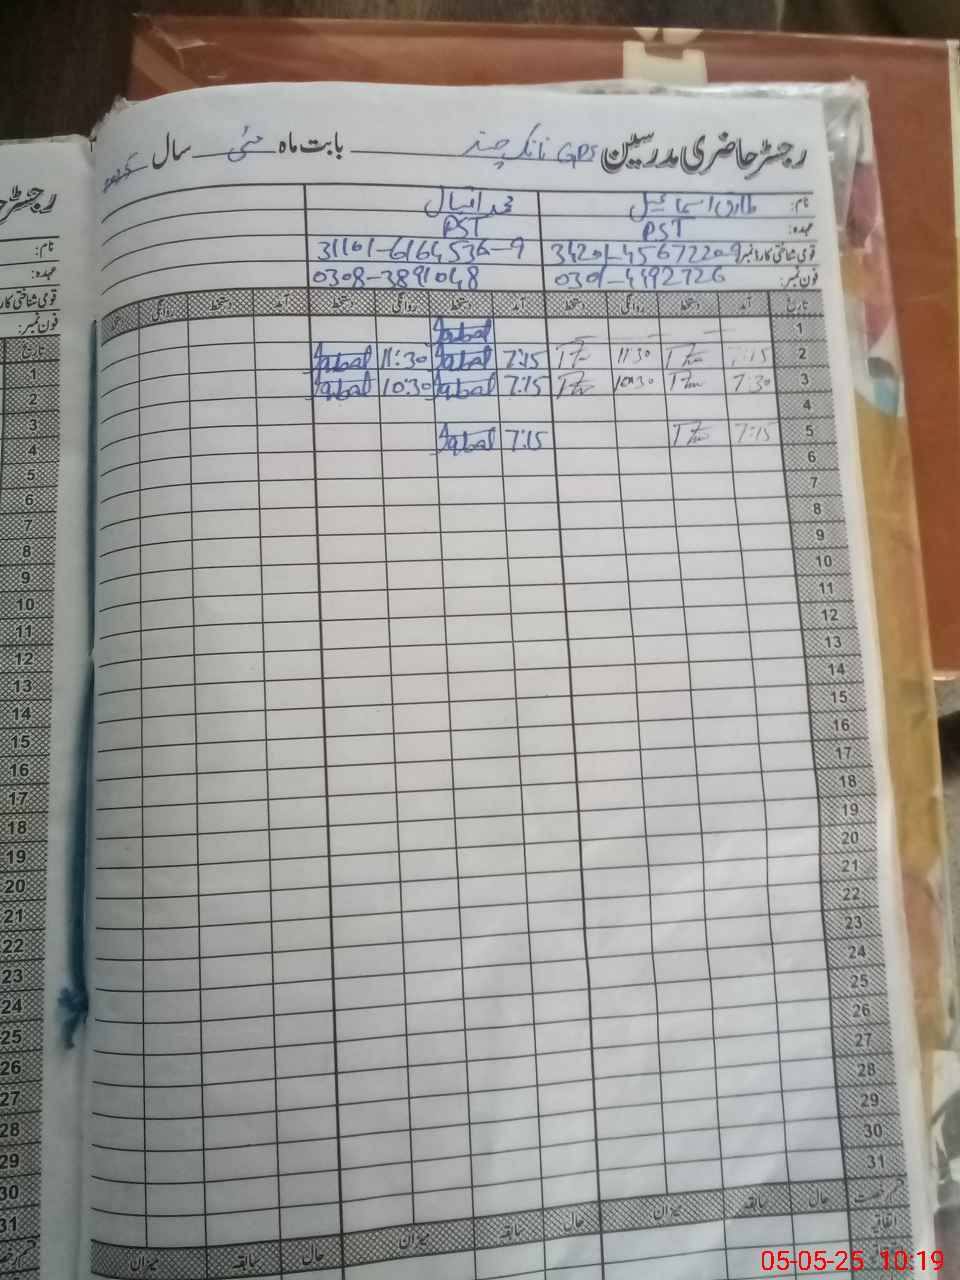 رجسٹر حاضری مدرسین GPS نانک چند بابت ماہ مئی سال
نام: طارق اسماعیل محمد اقبال
عہدہ: PST PST
قومی شناختی کارڈ نمبر 34201-4567220-9 31101-6164536-9
فون نمبر: 0301-4492726 0308-3891048
تاریخ آمد دستخط روانگی دستخط آمد دستخط روانگی دستخط آمد دستخط روانگی دستخط
1 Iqbal
2 7:15 11:30 7:15 Iqbal 11:30 Iqbal
3 7:30 10:30 7:15 Iqbal 10:30 Iqbal
4
5 7:15 7:15 Iqbal
6
7
8
9
10
11
12
13
14
15
16
17
18
19
20
21
22
23
24
25
26
27
28
29
30
31
حال سابقہ میزان حال سابقہ میزان حال سابقہ میزان
اتفاقیہ
رجسٹر
نام:
عہدہ:
قومی شناختی کارڈ
فون نمبر:
تاریخ
1
2
3
4
5
6
7
8
9
10
11
12
13
14
15
16
17
18
19
20
21
22
23
24
25
26
27
28
29
30
31
05-05-25 10:19